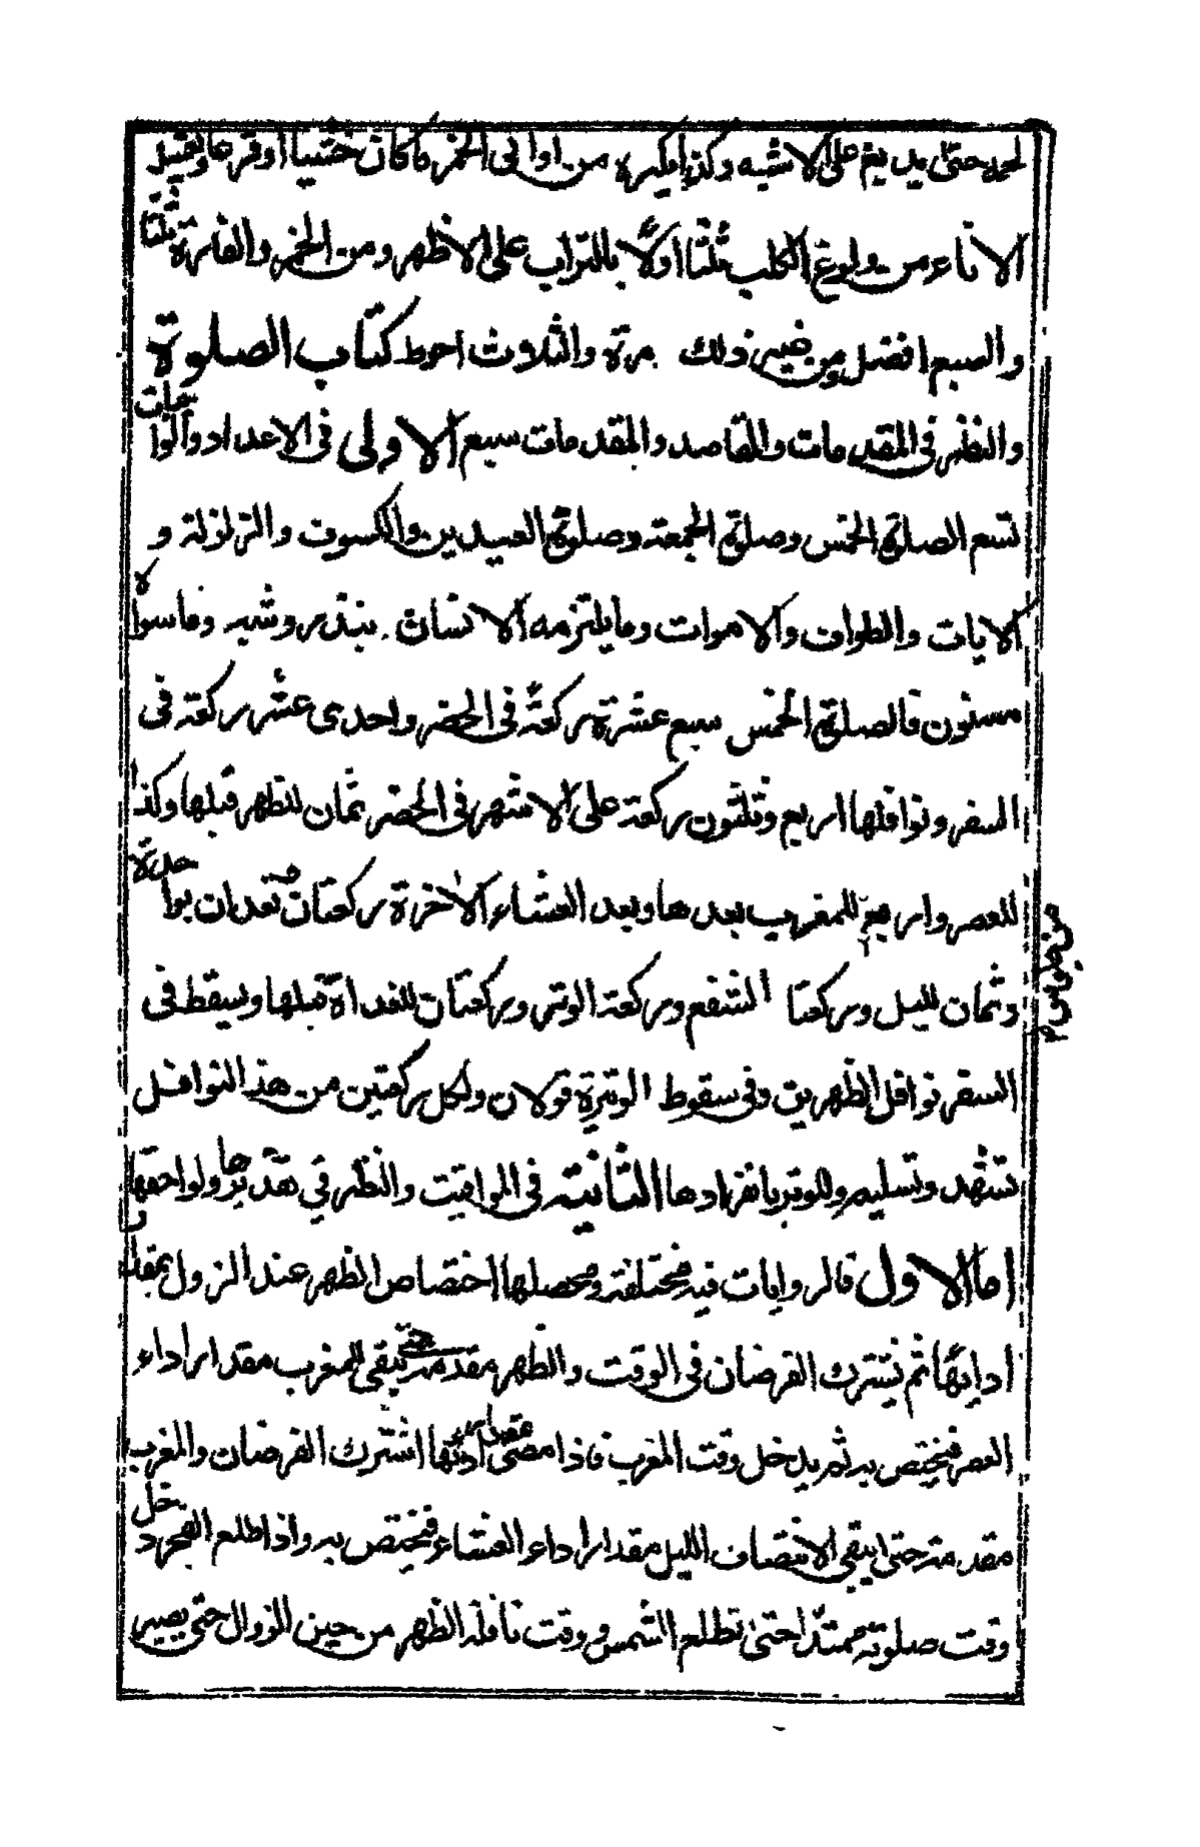 لحمه حتى يدبغ على الاشبه وكذا يكره من اوانى الخمر ما كان خشبيا او قرعا ويغسل
الاناء من ولوغ الكلب ثلثا اولا بالتراب على الاظهر ومن الخمر والفارة ثلثا
والسبع افضل ومن غير ذلك مرة والثلاث احوط كتاب الصلوة
والنظر فى المقدمات والمقاصد والمقدمات سبع الاولى فى الاعداد والواجبات
تسع الصلوة الخمس وصلوة الجمعة وصلوة العيدين والكسوف والزلزلة و
الايات والطواف والاموات وما يلتزمه الانسان بنذر وشبهه وما سواه
مسنون فالصلوة الخمس سبع عشرة ركعة فى الحضر واحدى عشر ركعة فى
السفر ونوافلها اربع وثلثون ركعة على الاشهر فى الحضر ثمان للظهر قبلها وكذا
للعصر واربع للمغرب بعدها وبعد العشاء الاخرة ركعتان تعدان بواحدة
من جلوس
وثمان لليل وركعتا الشفع وركعة الوتر وركعتان للغداة قبلها ويسقط فى
السفر نوافل الظهرين وفى سقوط الوتيرة قولان ولكل ركعتين من هذه النوافل
تشهد وتسليم وللوتر بانفرادها الثانية فى المواقيت والنظر فى تقديرها ولواحقها
اما الاول فالروايات فيه مختلفة ومحصلها اختصاص الظهر عند الزوال بمقدار
ادائها ثم يشترك الفرضان فى الوقت والظهر مقدمة حتى يبقى للمغرب مقدار اداء
العصر فيختص به ثم يدخل وقت المغرب فاذا مضى مقدار ادائها اشترك الفرضان والمغرب
مقدمة حتى يبقى لانتصاف الليل مقدار اداء العشاء فيختص به واذا طلع الفجر دخل
وقت صلوته ممتدا حتى تطلع الشمس ووقت نافلة الظهر من حين الزوال حتى يصير